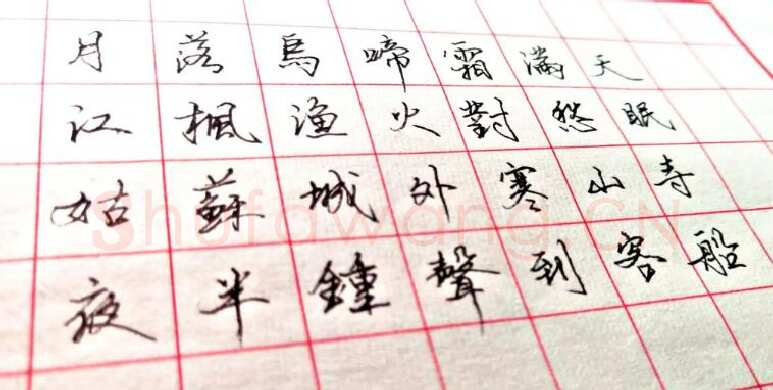 月落烏啼霜滿天
江楓漁火對愁眠
姑蘇城外寒山寺
夜半鐘聲到客船
Shufawang.CN